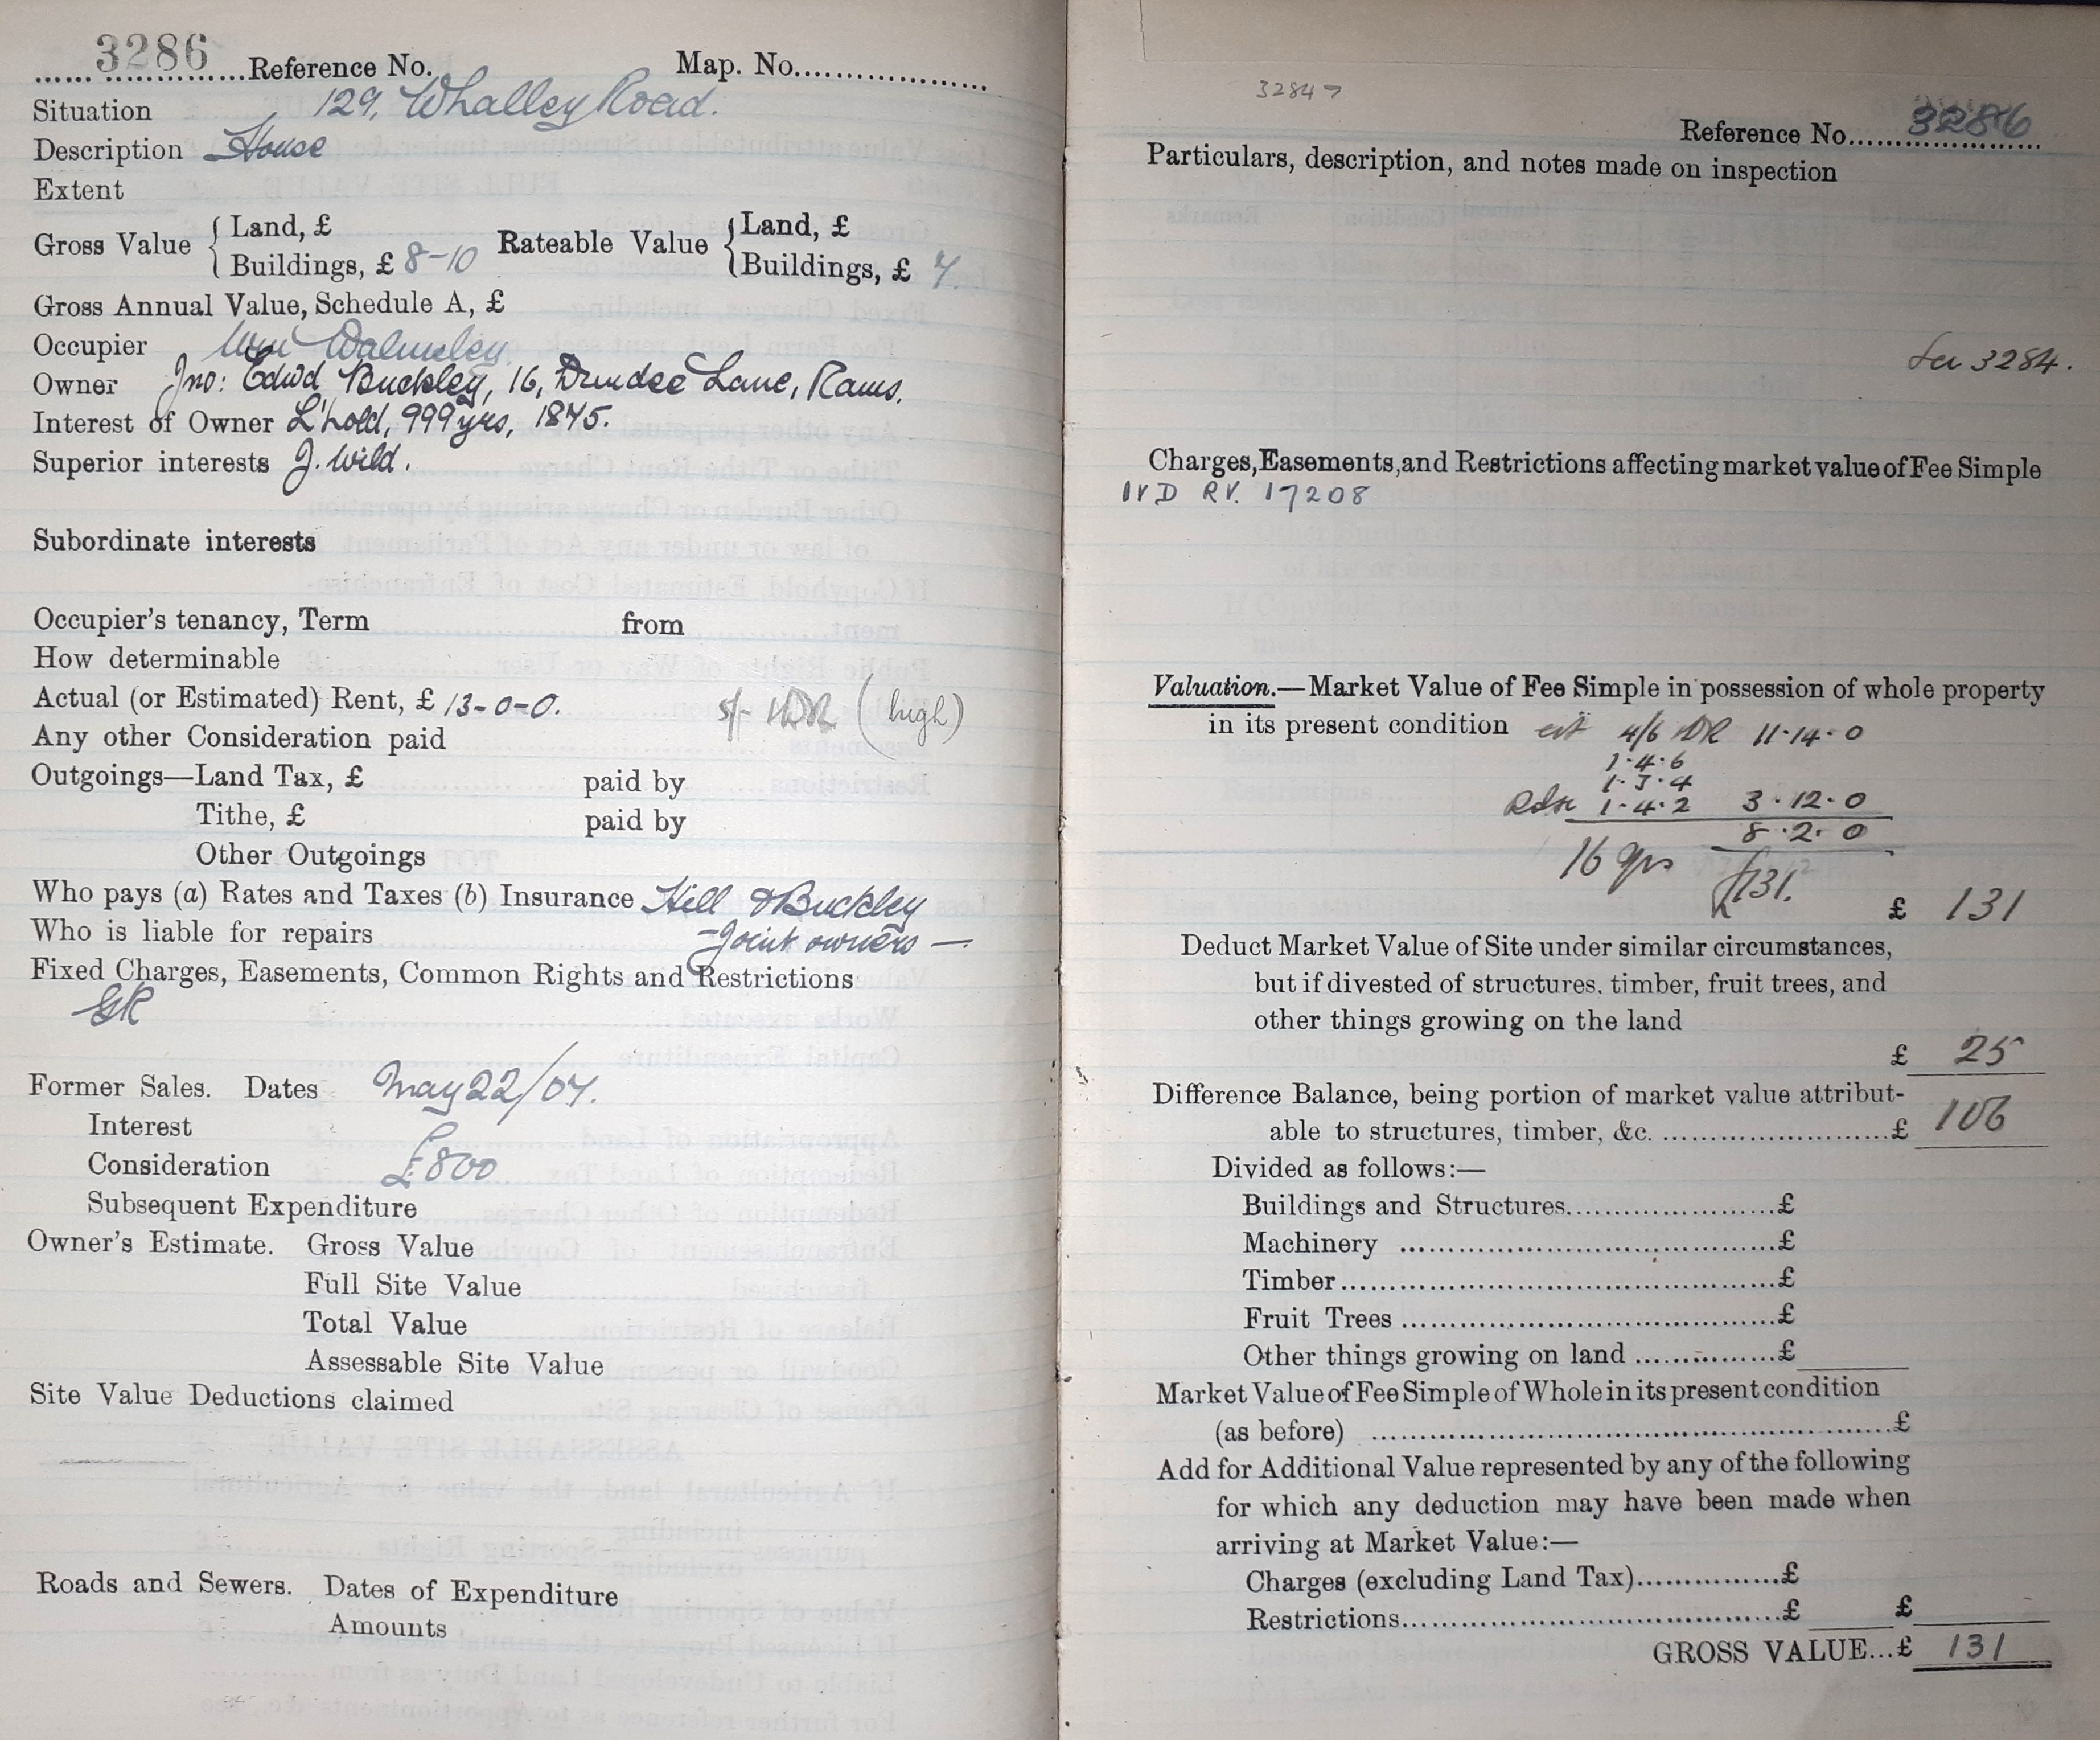 3286 Reference No. Map. No.
Situation 129, Whalley Road.
Description House
Extent
Gross Value { Land, £ Rateable Value { Land, £
Buildings, £ 8-10 Buildings, £ 7.
Gross Annual Value, Schedule A, £
Occupier Wm Walmsley
Owner Jno: Edwd Buckley, 16, Dundee Lane, Rams.
Interest of Owner L'hold, 999 yrs, 1875.
Superior interests J. Wild.
Subordinate interests
Occupier's tenancy, Term from
How determinable
Actual (or Estimated) Rent, £ 13-0-0. 5/- DR (high)
Any other Consideration paid
Outgoings—Land Tax, £ paid by
Tithe, £ paid by
Other Outgoings
Who pays (a) Rates and Taxes (b) Insurance Hill & Buckley
Who is liable for repairs - Joint owners -
Fixed Charges, Easements, Common Rights and Restrictions
GR
Former Sales. Dates May 22/07.
Interest
Consideration £800
Subsequent Expenditure
Owner's Estimate. Gross Value
Full Site Value
Total Value
Assessable Site Value
Site Value Deductions claimed
Roads and Sewers. Dates of Expenditure
Amounts
3284
Reference No. 3286
Particulars, description, and notes made on inspection
See 3284.
Charges, Easements, and Restrictions affecting market value of Fee Simple
IVD RV. 17208
Valuation.—Market Value of Fee Simple in possession of whole property
in its present condition est 4/6 DR 11-14-0
1.4.6
1.3.4
1.4.2 3.12.0
8.2.0
16 yps £131.
£ 131
Deduct Market Value of Site under similar circumstances,
but if divested of structures. timber, fruit trees, and
other things growing on the land
£ 25
Difference Balance, being portion of market value attribut-
able to structures, timber, &c. £ 106
Divided as follows:—
Buildings and Structures £
Machinery £
Timber £
Fruit Trees £
Other things growing on land £
Market Value of Fee Simple of Whole in its present condition
(as before) £
Add for Additional Value represented by any of the following
for which any deduction may have been made when
arriving at Market Value:—
Charges (excluding Land Tax) £
Restrictions £ £
GROSS VALUE...£ 131